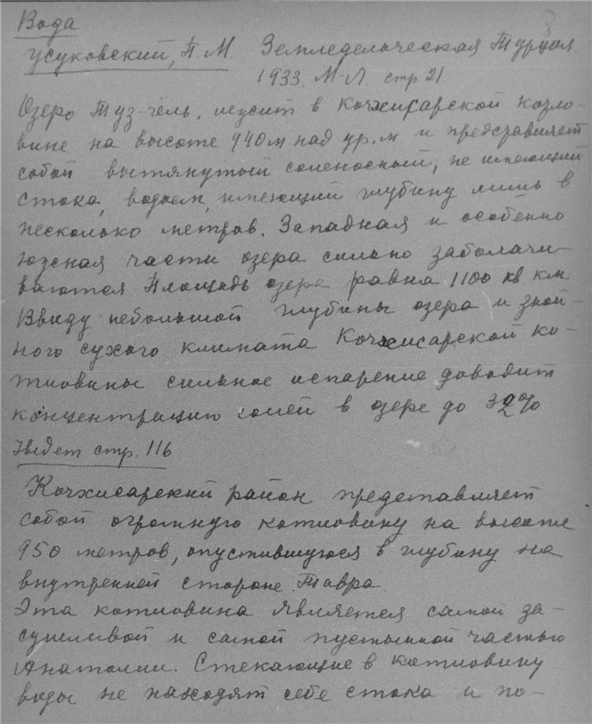 Вода
Усуковский, П. М. Земледельческая Турция.
1933. М-Л. стр. 21.
Озеро Туз-чель, лежит в Кочхисарской котло-
вине на высоте 940 м над ур. м и представляет
собой вытянутый соленосный, не имеющий
стока, водоем, имеющий глубину лишь в
несколько метров. Западная и особенно
южная части озера сильно заболачи-
ваются Площадь озера равна 1100 кв км
Ввиду небольшой глубины озера и зной-
ного сухого климата Кочхисарской ко-
тловины сильное испарение доводит
концентрацию солей в озере до 32%
стр. 116
Кочхисарский район представляет
собой огромную котловину на высоте
950 метров, опустившуюся в глубину на
внутренней стороне Тавра
Эта котловина является самой за-
сушливой и самой пустынной частью
Анатолии. Стекающие в котловину
воды не находят себе стока и по-